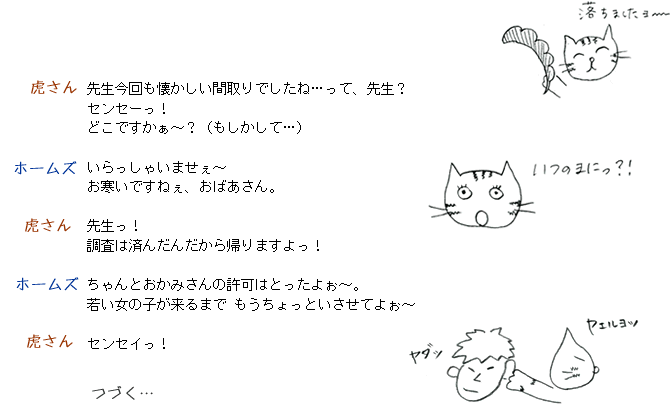 落ちましたョ〜
虎さん 先生今回も懐かしい間取りでしたね…って、先生？
センセーっ！
どこですかぁ〜？（もしかして…）
ホームズ いらっしゃいませぇ〜
お寒いですねぇ、おばあさん。
いつのまにっ?!
虎さん 先生っ！
調査は済んだんだから帰りますよっ！
ホームズ ちゃんとおかみさんの許可はとったよぉ〜。
若い女の子が来るまで もうちょっといさせてよぉ〜
虎さん センセイっ！
ヤダッ
ヤエルヨッ
つづく…